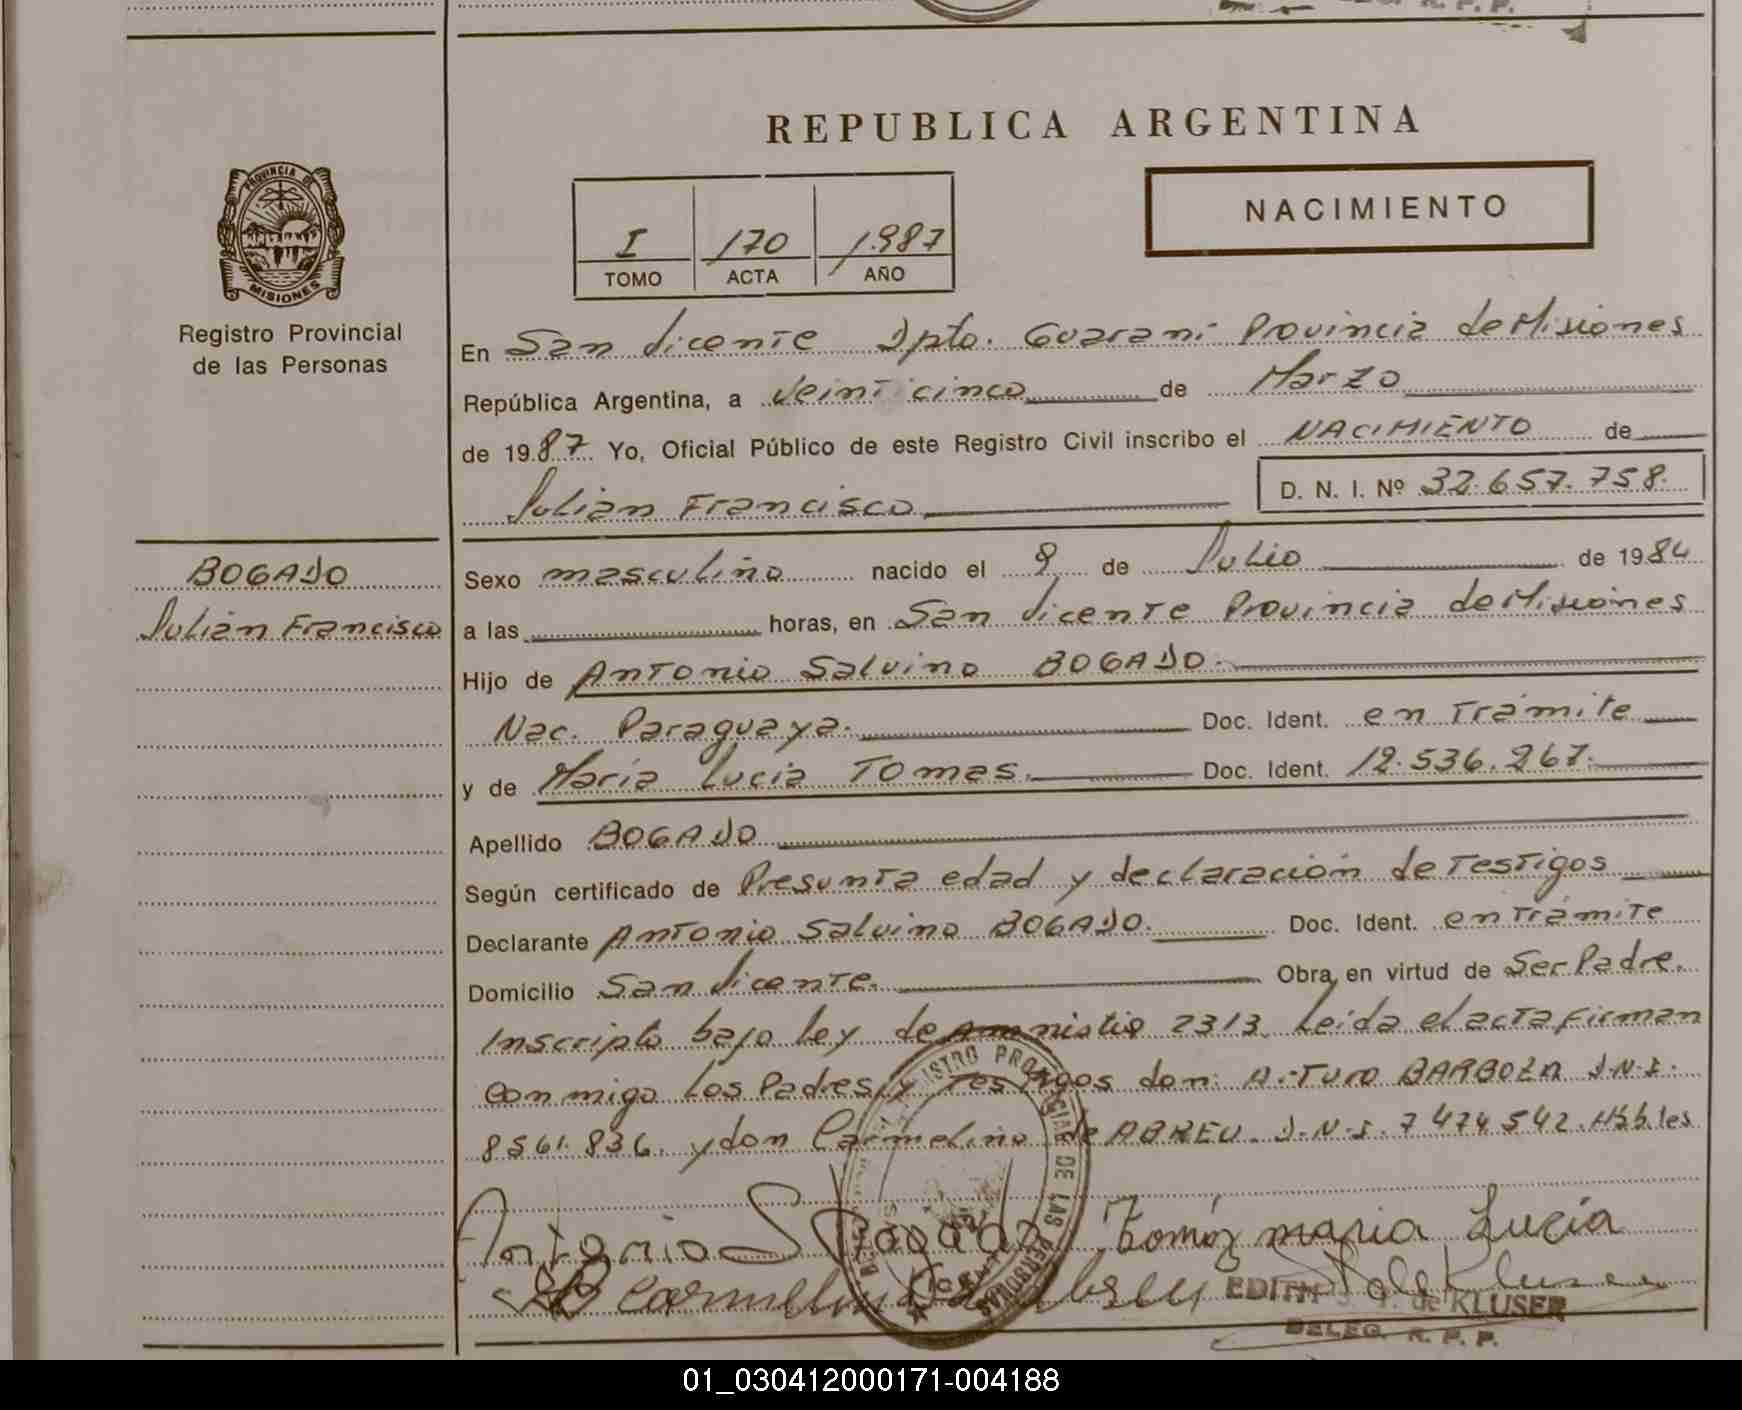 REPUBLICA ARGENTINA
PROVINCIA DE
MISIONES
Registro Provincial
de las Personas
I 170 1.987
TOMO ACTA AÑO
NACIMIENTO
En San Vicente Dpto. Guaraní Provincia de Misiones
República Argentina, a Veinticinco de Marzo
de 1987. Yo, Oficial Público de este Registro Civil inscribo el NACIMIENTO de
Julián Francisco D. N. I. Nº 32.657.758.
BOGADO
Julián Francisco
Sexo masculino nacido el 9 de Julio de 1984
a las horas, en San Vicente Provincia de Misiones
Hijo de Antonio Salvino BOGADO.
Nac. Paraguaya. Doc. Ident. en Trámite
y de María Lucia Tomas. Doc. Ident. 12.536.267.
Apellido BOGADO
Según certificado de Presunta edad y declaración de Testigos
Declarante Antonio Salvino BOGADO. Doc. Ident. en Trámite
Domicilio San Vicente. Obra, en virtud de Ser Padre.
Inscripto bajo Ley de Amnistia 2313. Leída el acta firman
Conmigo Los Padres y Testigos don: Arturo BARBOZA D.N.I.
8561.836. y don Carmelino de ABREU. D.N.I. 7474542. Hábiles
Antonio S Bogado Tomáz maria Lucía
EDITH de KLUSER
DELEG. R. P. P.
01_030412000171-004188